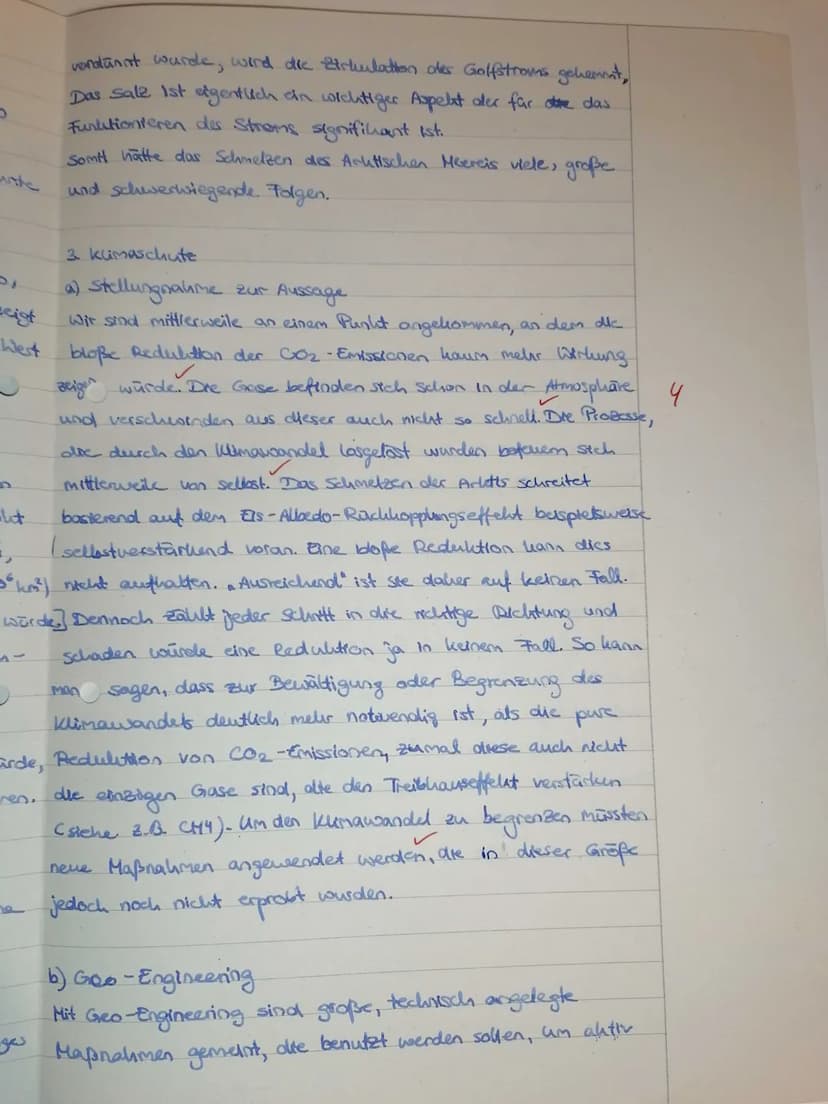 verdünnt wurde, wird die Zirkulation des Golfstroms gehemmt,
Das Salz ist eigentlich ein wichtiger Aspekt der für das
Funktionieren des Stroms signifikant ist.
somit hätte das Schmelzen des Arktischen Meereis viele, große
und schwerwiegende Folgen.
3. Klimaschutz
a) Stellungnahme zur Aussage
eigt Wir sind mittlerweile an einem Punkt angekommen, an dem die
West bloße Reduktion der CO2-Emissionen kaum mehr Wirkung
zeigen würde. Die Gase befinden sich schon in der Atmosphäre 4
und verschwinden aus dieser auch nicht so schnell. Die Prozesse,
die durch den Klimawandel losgelöst wurden befeuern sich
mittlerweile von selbst. Das Schmelzen der Arktis schreitet
basierend auf dem Eis-Albedo-Rückkopplungseffekt beispielsweise
selbstverstärkend voran. Eine bloße Reduktion kann dies
km²) nicht aufhalten. „Ausreichend" ist sie daher auf keinen Fall.
würde] Dennoch zählt jeder Schritt in die richtige Richtung und
schaden würde eine Reduktion ja in keinem Fall. So kann
man sagen, dass zur Bewältigung oder Begrenzung des
Klimawandels deutlich mehr notwendig ist, als die pure
ürde, Reduktion von CO2-Emissionen, zumal diese auch nicht
ren. die einzigen Gase sind, die den Treibhauseffekt verstärken
(siehe z.B. CH4). Um den Klimawandel zu begrenzen müssten
neue Maßnahmen angewendet werden, die in dieser Größe
jedoch noch nicht erprobt wurden.
b) Geo-Engineering
Mit Geo-Engineering sind große, technisch angelegte
ges Maßnahmen gemeint, die benutzt werden sollen, um aktiv